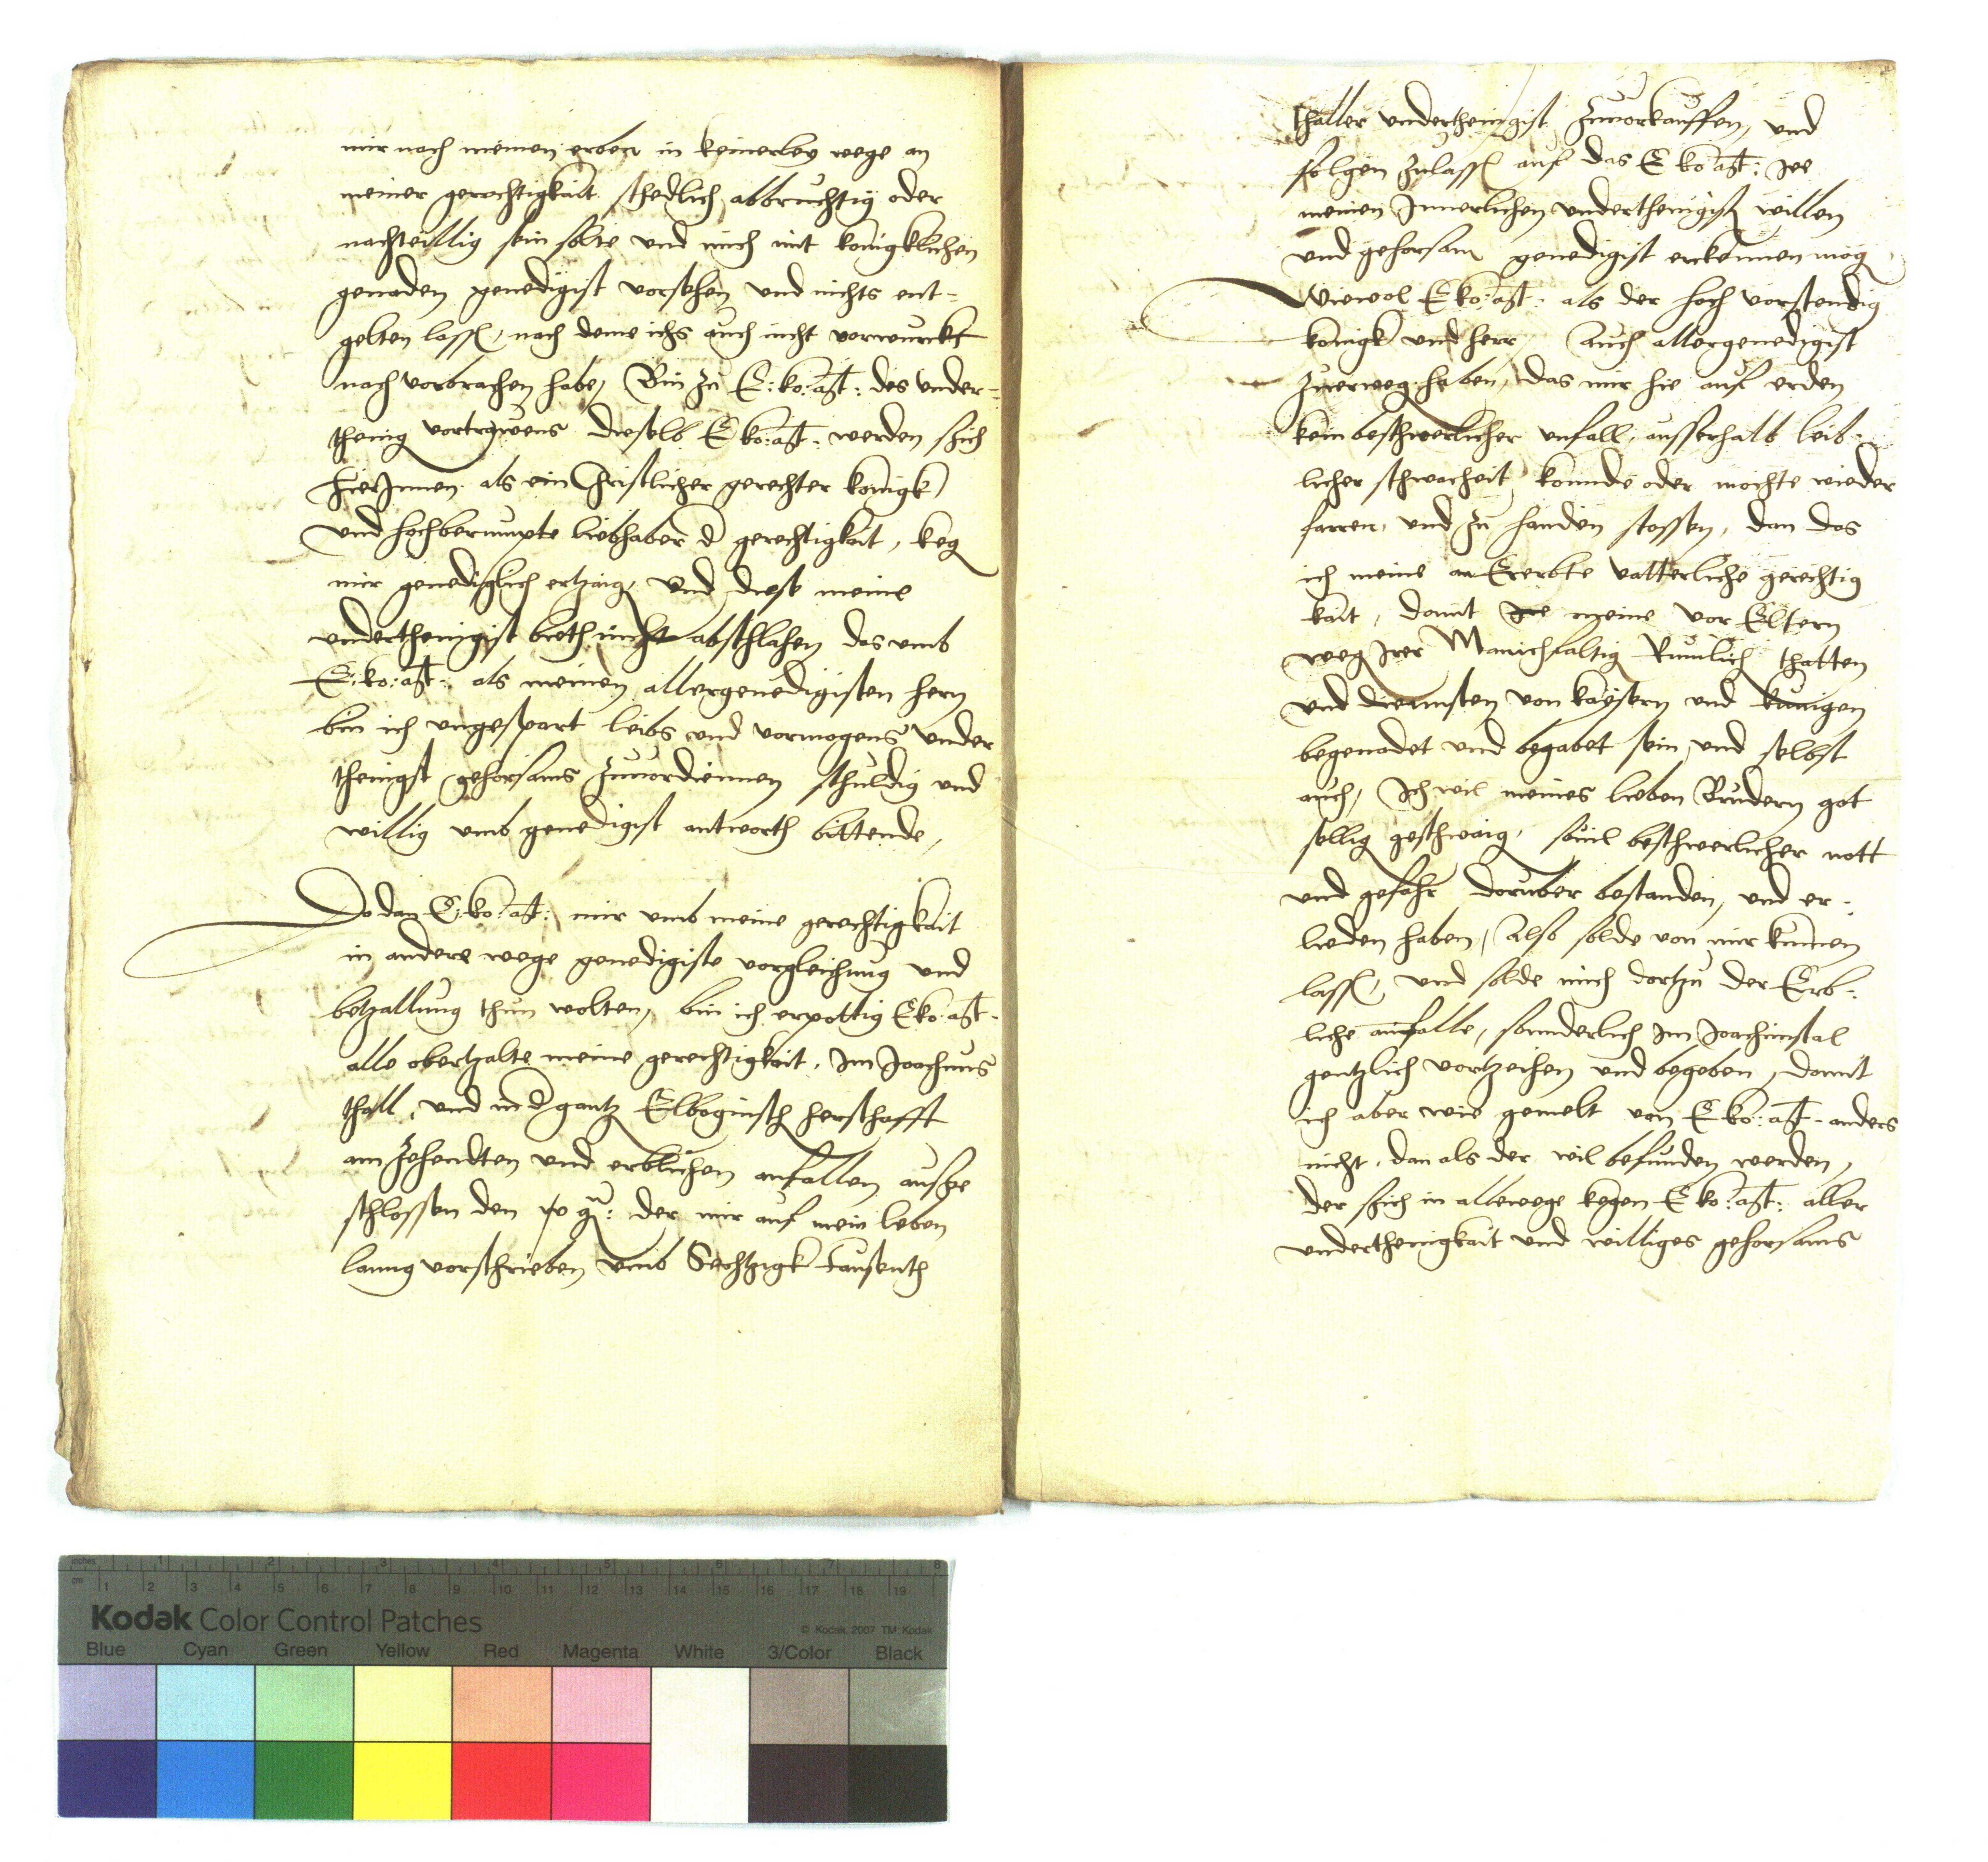 mir noch meinen erben in keinerley wege an
meiner gerechtigkait schedlich abbruchtig oder
nachteillig sein solte und mich mit koniglichen
genaden genedigist vorsehen und nichts ent-
gelten lassen, nach deme ichs auch nicht vorwurckt
noch vorbrachen habe, Bin zu E: ko: Mt: des under-
thenig vortrawens dieselb E ko: Mt: werden sich
hierInnen als ein Christlicher gerechter konigk
und hochberumpte liebhaber der gerechtigkait, keg
mir genediglich ertzaig, und diese meine
underthenigist bieth nicht abschlahen das umb
E: ko: Mt: als meinen allergenedigisten hern
bin ich ungespart leibs und vormogens under
thenigst gehorsams zuuordiennen schuldig und
willig umb genedigist antworth bittende,
So dan E: ko: Mt: mir umb meine gerechtigkait
in andere wege genedigiste vorgleichung und
betzallung thun wolten, bin ich erpottig E ko: Mt:
alle obertzalte meine gerechtigkait, Im Joachims
thall, und in der gantz Elboginsch herschafft
am Zehendten und erblichen anfallen ausge
schlossen den der mir auf mein leben
lanng vorschrieben umb Sechtzigk tausenth
thaller underthenigist zuuorkauffen, und
folgen zulassen auf das E ko Mt: Jee
meinen Innerlichen underthenigist willen
und gehorsam genedigist erckennen mög
Wiewol E ko: Mt: als der hoch vorstendig
konigk und herr, Auch allergenedigist
zuerweg haben, das mir hie auf erden
kein beschwerlicher unfall, ausserhalb leib-
licher schwacheit konnde oder mochte wieder
farren, und zu handen stossen, dan das
ich meine an Ererbte vatterliche gerechtig
kait, damit meine vor Eltern
weg Irer Manichfaltig Rumlich thatten
und diennsten von kaysern und kunigen
begenadet und begabet sein, und selbst
auch, Ich wil meines lieben Brudern got
sellig geschwaig, souil beschwerlicher nott
und gefahr doruber bestanden, und er-
lieden haben, Also solde von mir kumen
lassen, und solde mich dortzu der Erb-
liche anfalle, sonnderlich Im Joachimstal
gentzlich vortzeihen und begeben, damit
ich aber wie gemelt von E ko: Mt: anders
nicht, dan als der wil befunden werden,
der sich in allewege kegen E ko: Mt: aller
underthenigkait und williges gehorsams
inches
1 2 3 4 5 6 7 8
cm 1 2 3 4 5 6 7 8 9 10 11 12 13 14 15 16 17 18 19
Kodak Color Control Patches
© Kodak, 2007 TM: Kodak
Blue Cyan Green Yellow Red Magenta White 3/Color Black